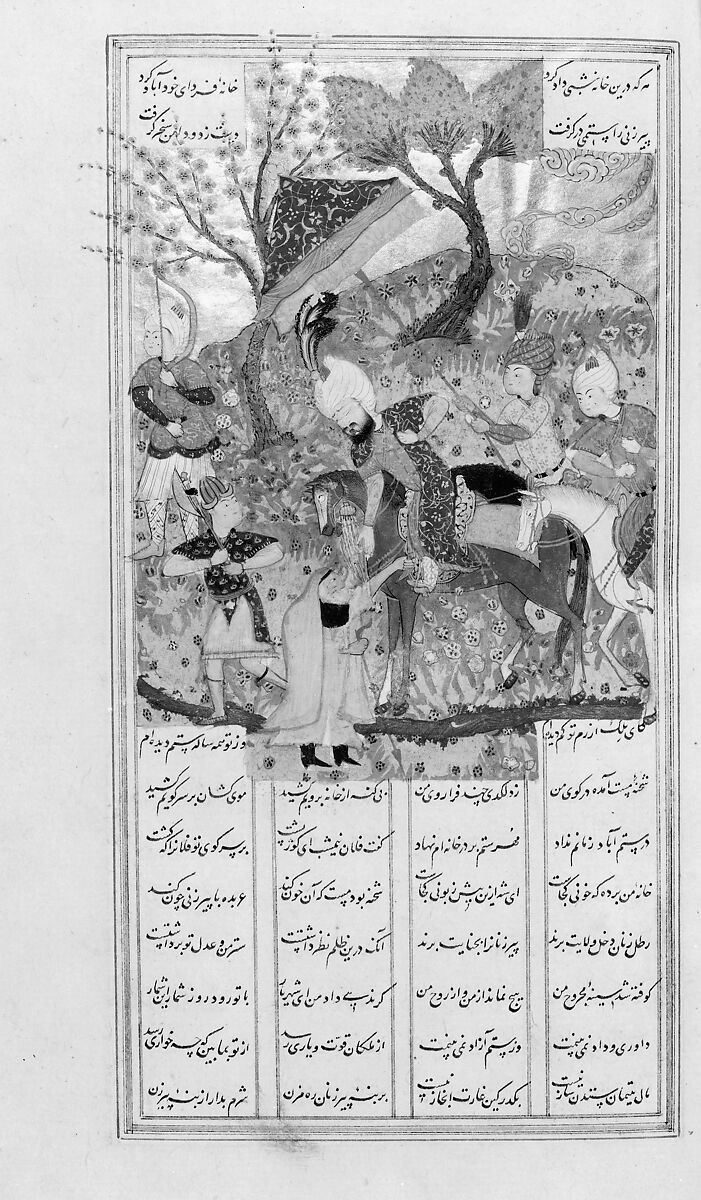 هر که درین خانه شبی داد کرد خانه فردای خود آباد کرد
پیرزنی را ستمی درگرفت دست زد و دامن سنجر گرفت
کای ملک آزرم تو کم دیده ام وز تو همه ساله ستم دیده ام
شحنه مست آمده در کوی من زد لگدی چند فرا روی من بی گنه از خانه برویم کشید موی کشان بر سر کویم کشید
در ستم آباد زمانم نداد مهر ستم بر در خانه ام نهاد گفت فلان نیمشب ای کوژپشت بر سر کوی تو فلانرا که کشت
خانه من برده که خونی کجاست ای شه ازین بیش زبونی کجاست شحنه بود مست که آن خون کند عربده با پیرزنی چون کند
رطل زنان دخل ولایت برند پیرزنانرا بجنایت برند آنکه درین ظلم نظر داشتست ستر من و عدل تو برداشتست
کوفته شد سینه مجروح من هیچ نماند از من و از روح من گر ندهی داد من ای شهریار با تو رود روز شمار این شمار
داوری و داد نمی بینمت وز ستم آزاد نمی بینمت از ملکان قوت و یاری رسد از تو بما بین که چه خواری رسد
مال یتیمان ستدن ساز نیست بگذر کین غارت ابخاز نیست بر بنه پیرزنان ره مزن شرم بدار از بنه پیرزن